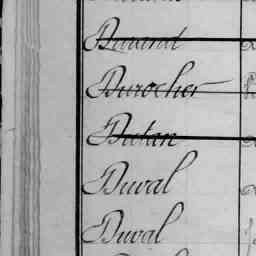 Durand
Durocher
Dutan
Duval
Duval